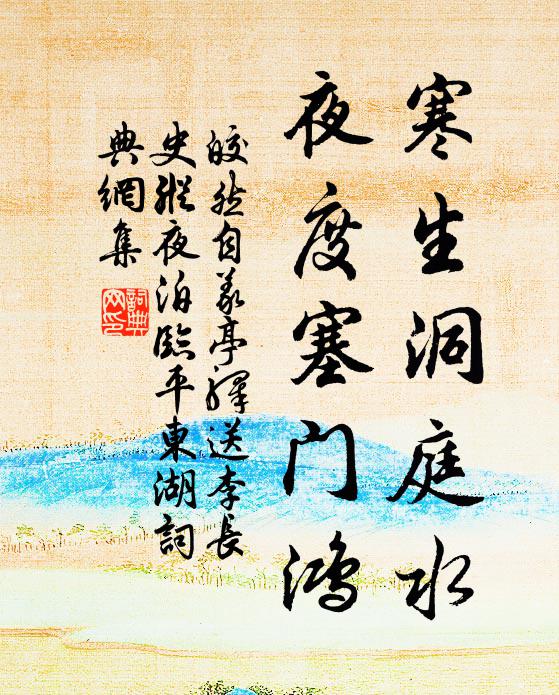 寒生洞庭水
夜度塞门鸿
皎然自義亭驛送李長
史縱夜泊臨平東湖詞
典網集
詞典
网印